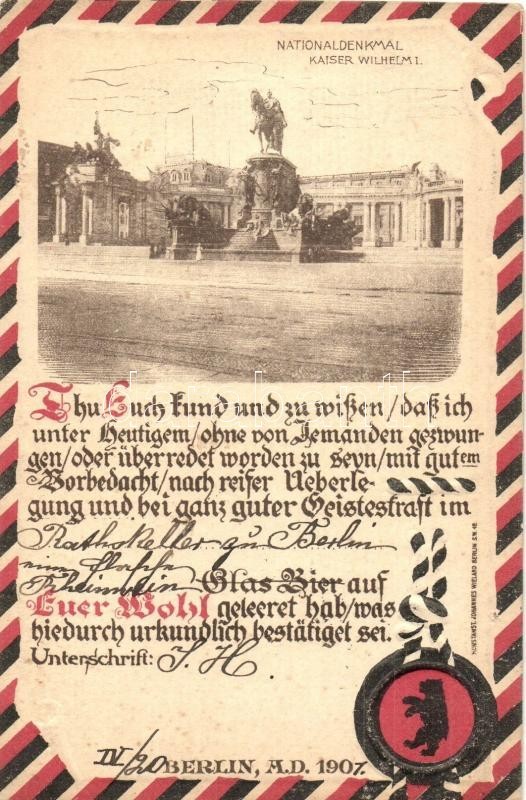 NATIONALDENKMAL
KAISER WILHELM I.
Thu Euch kund und zu wißen/daß ich
unter Heutigem/ohne von Jemanden gezwun-
gen/oder überredet worden zu seyn/mit gutem
Vorbedacht/nach reifer Ueberle-
gung und bei ganz guter Geisteskraft im
Rathskeller zu Berlin
eine Flasche
Rheinwein Glas Bier auf
Euer Wohl geleeret hab/was
hiedurch urkundlich bestätiget sei.
Unterschrift: J. H
IV/20 BERLIN, A.D. 1907.
KUNSTANST. JOHANNES WIELAND BERLIN S.W. 48